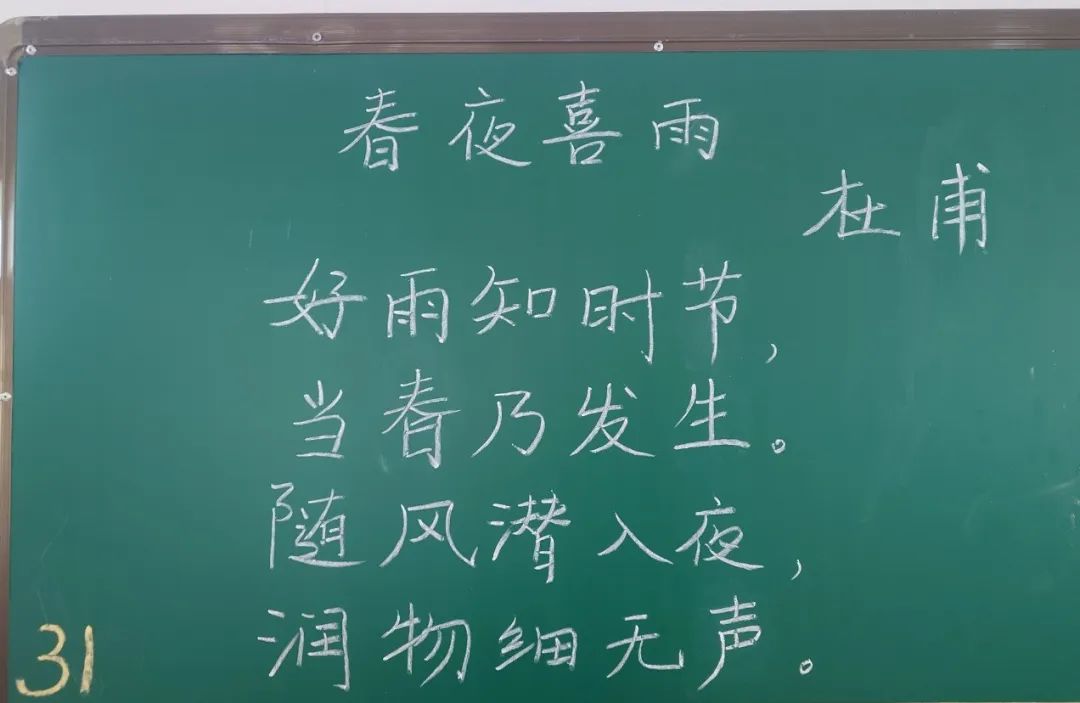 春夜喜雨
杜甫
好雨知时节，
当春乃发生。
随风潜入夜，
润物细无声。
31